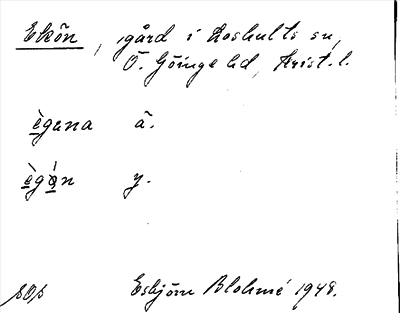 Ekön, gård i Loshults sn,
Ö. Göinge hd, Krist. l.
ègena ä.
ègøn y.
SOs Esbjörn Blohmé 1948.